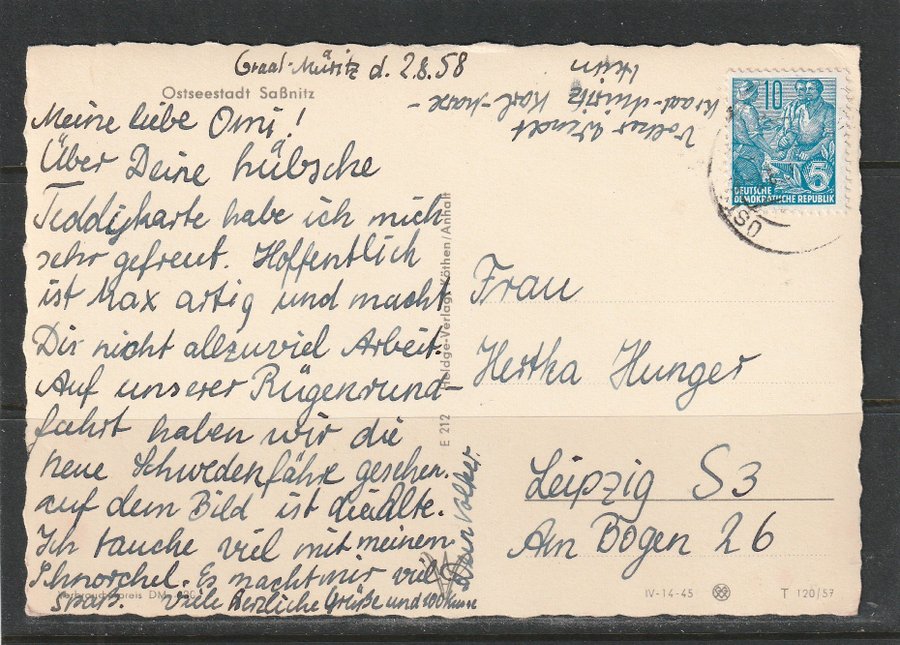 Graal-Müritz d. 2.8.58
Ostseestadt Saßnitz
Meine liebe Omi!
Über Deine hübsche
Teddykarte habe ich mich
sehr gefreut. Hoffentlich
ist Max artig und macht
Dir nicht allzuviel Arbeit.
Auf unserer Rügenrund-
fahrt haben wir die
neue Schwedenfähre gesehen.
auf dem Bild ist die Alte.
Ich tauche viel mit meinem
Schnorchel. Es macht mir viel
Spaß. Viele herzliche Grüße und 100 Küsse
Dein Volker
Volker
Graal-Müritz Karl-Marx-
E 212 Heldge-Verlag, Köthen/Anhalt
10
5
DEUTSCHE
DEMOKRATISCHE REPUBLIK
OST
Frau
Hertha Hunger
Leipzig S3
Am Bogen 26
Verbraucherpreis DM
IV-14-45
T 120/57